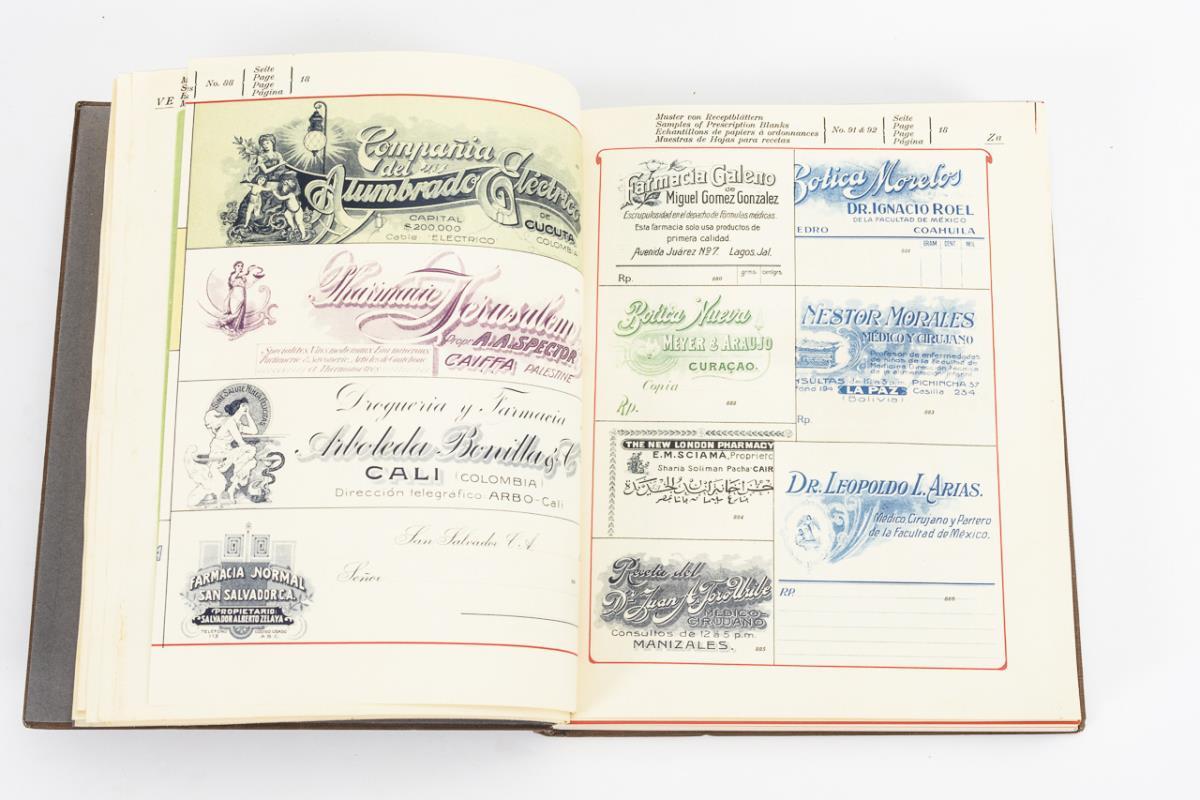 VE
No. 88
Seite
Page
Page
Página
18
Compañia
del
Alumbrado Eléctrico
CAPITAL
$ 200,000
Cable "ELECTRICO"
DE
CUCUTA
COLOMBIA
Pharmacie Jerusalem
Propr. A.A. SPECTOR
CAIFFA PALESTINE
Droguería y Farmacia
Arboleda Bonilla & C
CALI (COLOMBIA)
Dirección telegráfico: ARBO-Cali
San Salvador C. A.
Señor
FARMACIA NORMAL
SAN SALVADOR C.A.
PROPIETARIO:
SALVADOR ALBERTO ZELAYA
TELEFONO
113
CODIGO USADO
A.B.C.
Muster von Receptblättern
Samples of Prescription Blanks
Echantillons de papiers à ordonnances
Muestras de Hojas para recetas
No. 91 & 92
Seite
Page
Page
Página
18
Za
Farmacia Galeno
de
Miguel Gomez Gonzalez
Escrupulosidad en el despacho de Fórmulas médicas.
Esta farmacia solo usa productos de
primera calidad.
Avenida Juárez Nº 7. Lagos, Jal.
Rp.
880
grms. centgrs.
Botica Morelos
DR. IGNACIO ROEL
DE LA FACULTAD DE MÉXICO
EDRO COAHUILA
GRAM CENT MIL
Botica Nueva
MEYER & ARAUJO
CURAÇAO.
Copia
Rp.
882
NESTOR MORALES
MÉDICO Y CIRUJANO
Profesor de enfermedades
de niños de la Facultad de
Medicina Dirección Técnica
NSULTAS de 1 a 3 p.m. PICHINCHA 57
fono 194 LA PAZ Casilla 234
(Bolivia)
Rp.
883
THE NEW LONDON PHARMACY
E.M. SCIAMA, Proprieto
Sharia Soliman Pacha-CAIR
884
DR. LEOPOLDO L. ARIAS.
Médico, Cirujano y Partero
de la Facultad de México.
RP.
886
Receta del
Dr. Juan A. Toro Uribe
MEDICO-
CIRUJANO
Consultos de 12 à 5 p.m.
MANIZALES.
885